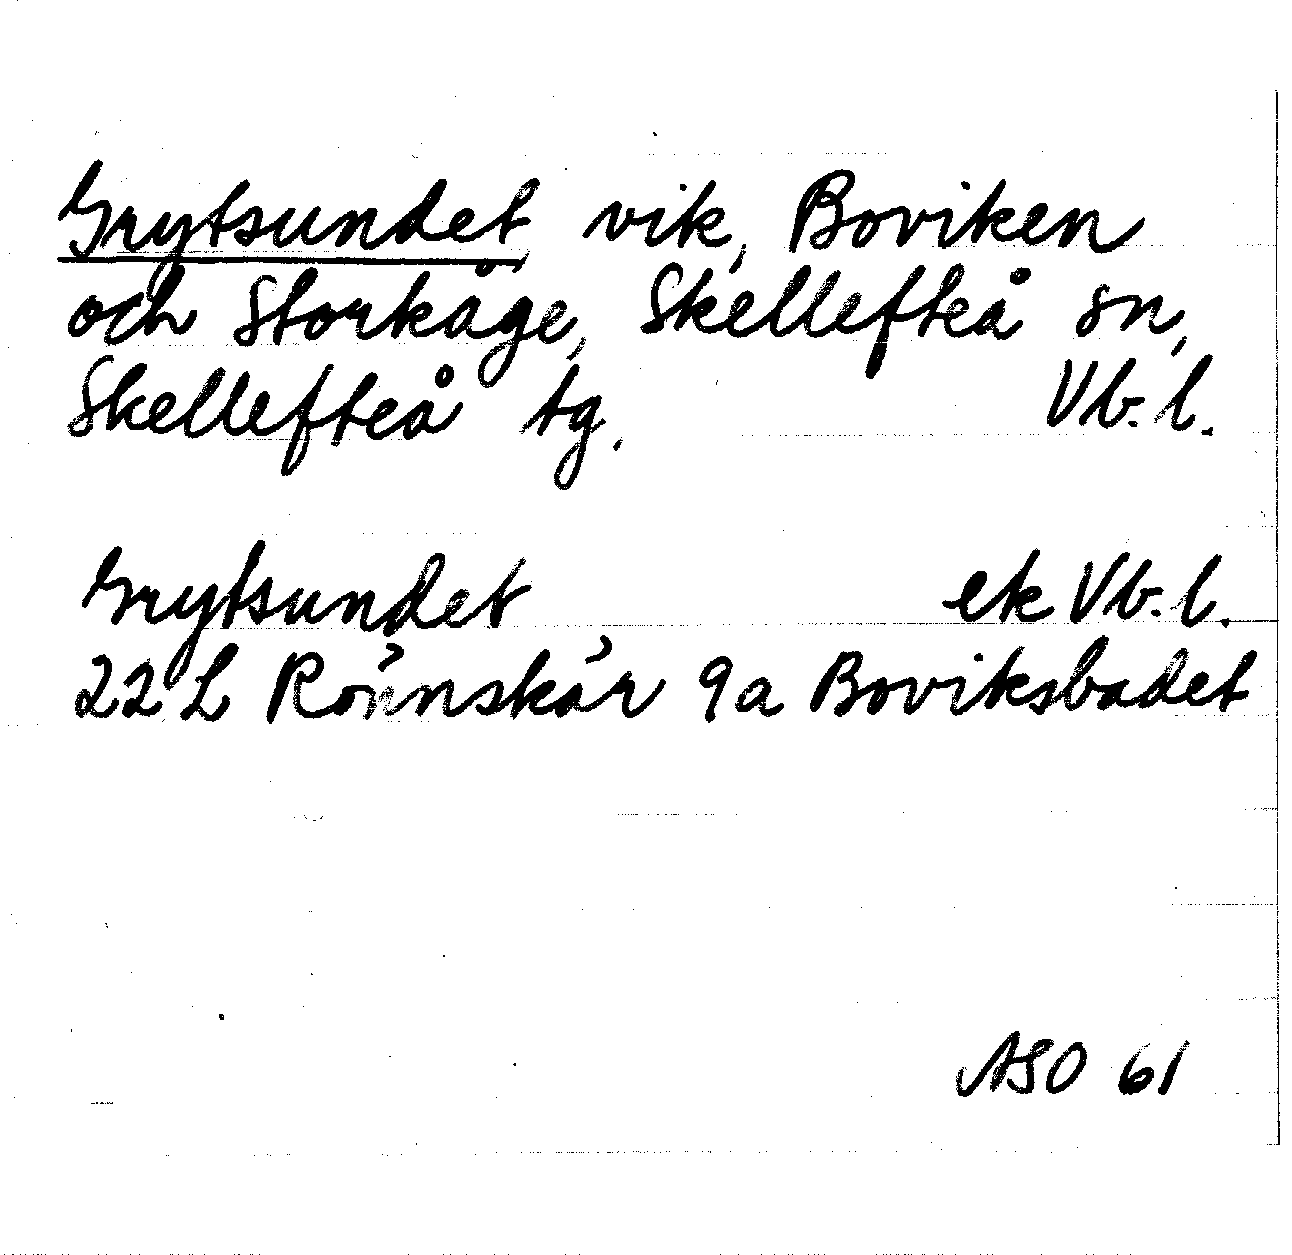 Grytsundet, vik, Boviken
och Storkåge, Skellefteå sn,
Skellefteå tg. Vb. l.
Grytsundet ek Vb. l.
22 L Rönnskär 9a Boviksbadet
ASO 61